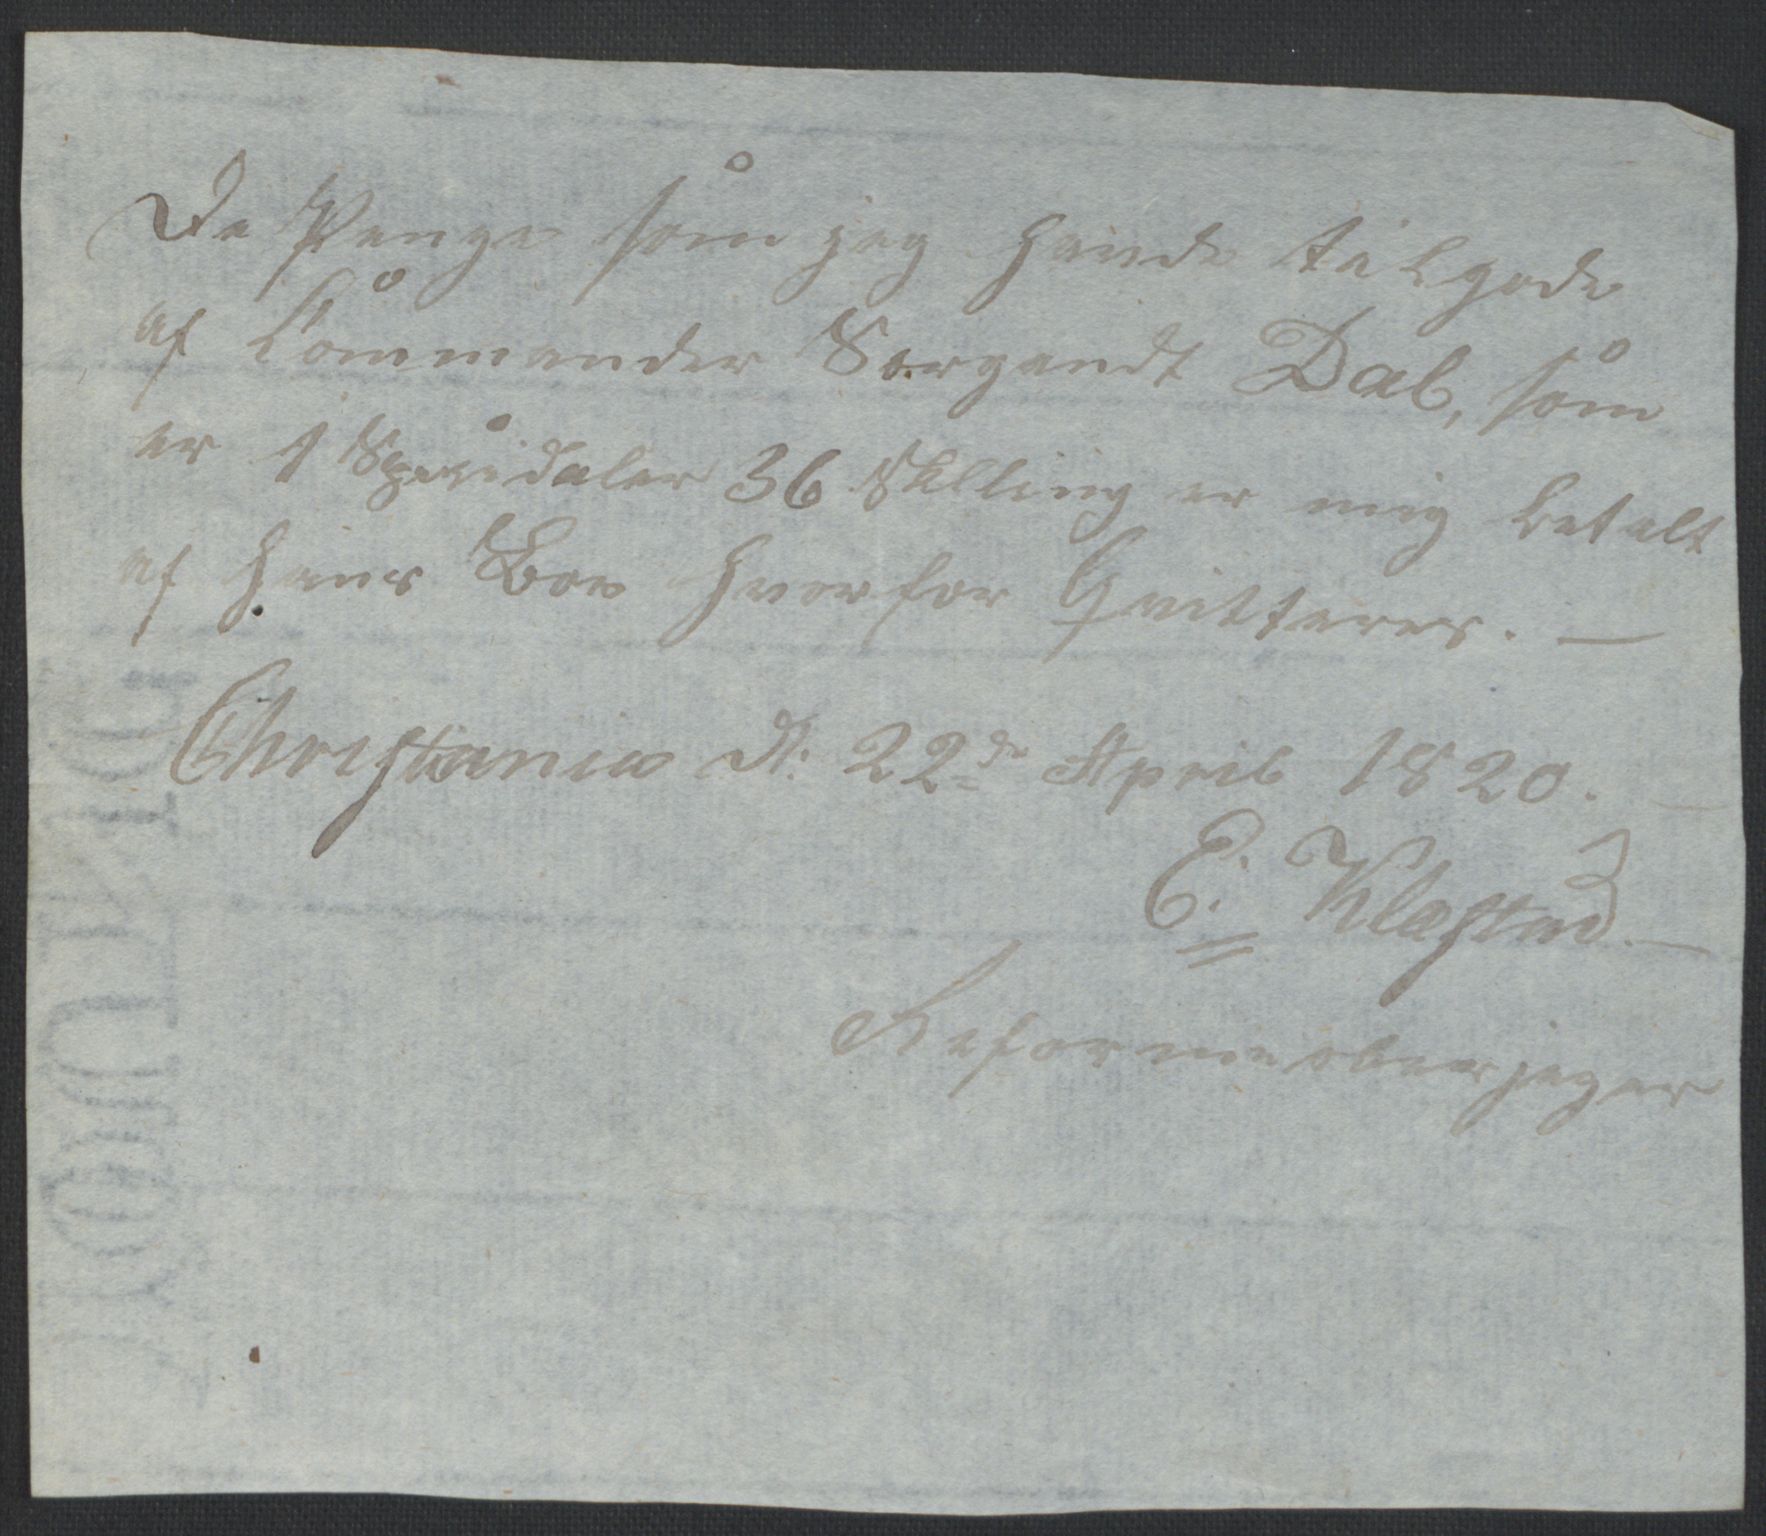 De Penge som jeg havde tilgode
af Commander Sergandt Dal, som
er 1 Specidaler 36 Skilling er mig betalt
af hans Boe hvorfor Qvitteres. —
Christania d. 22de April 1820. —
E. Klæstad. —